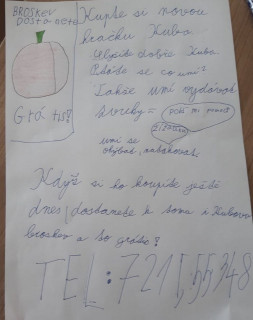 BROSKEV
DOSTANETE
GRÁTIS!
Kupte si novou
hračku Kuba
dobře Kuba
se co umí
Takže umí vydávat
zvuky=
umí se
ohýbat, nabakovat
Když si ho koupíte ještě
dnes dostanete k tomu i Kubovu
broskev a to grátis!
TEL: 721 55348